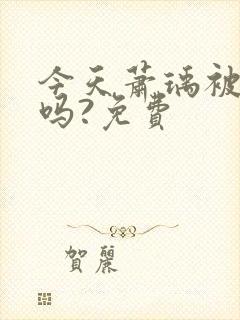 今天萧瑀被
吗?免费
賀麗